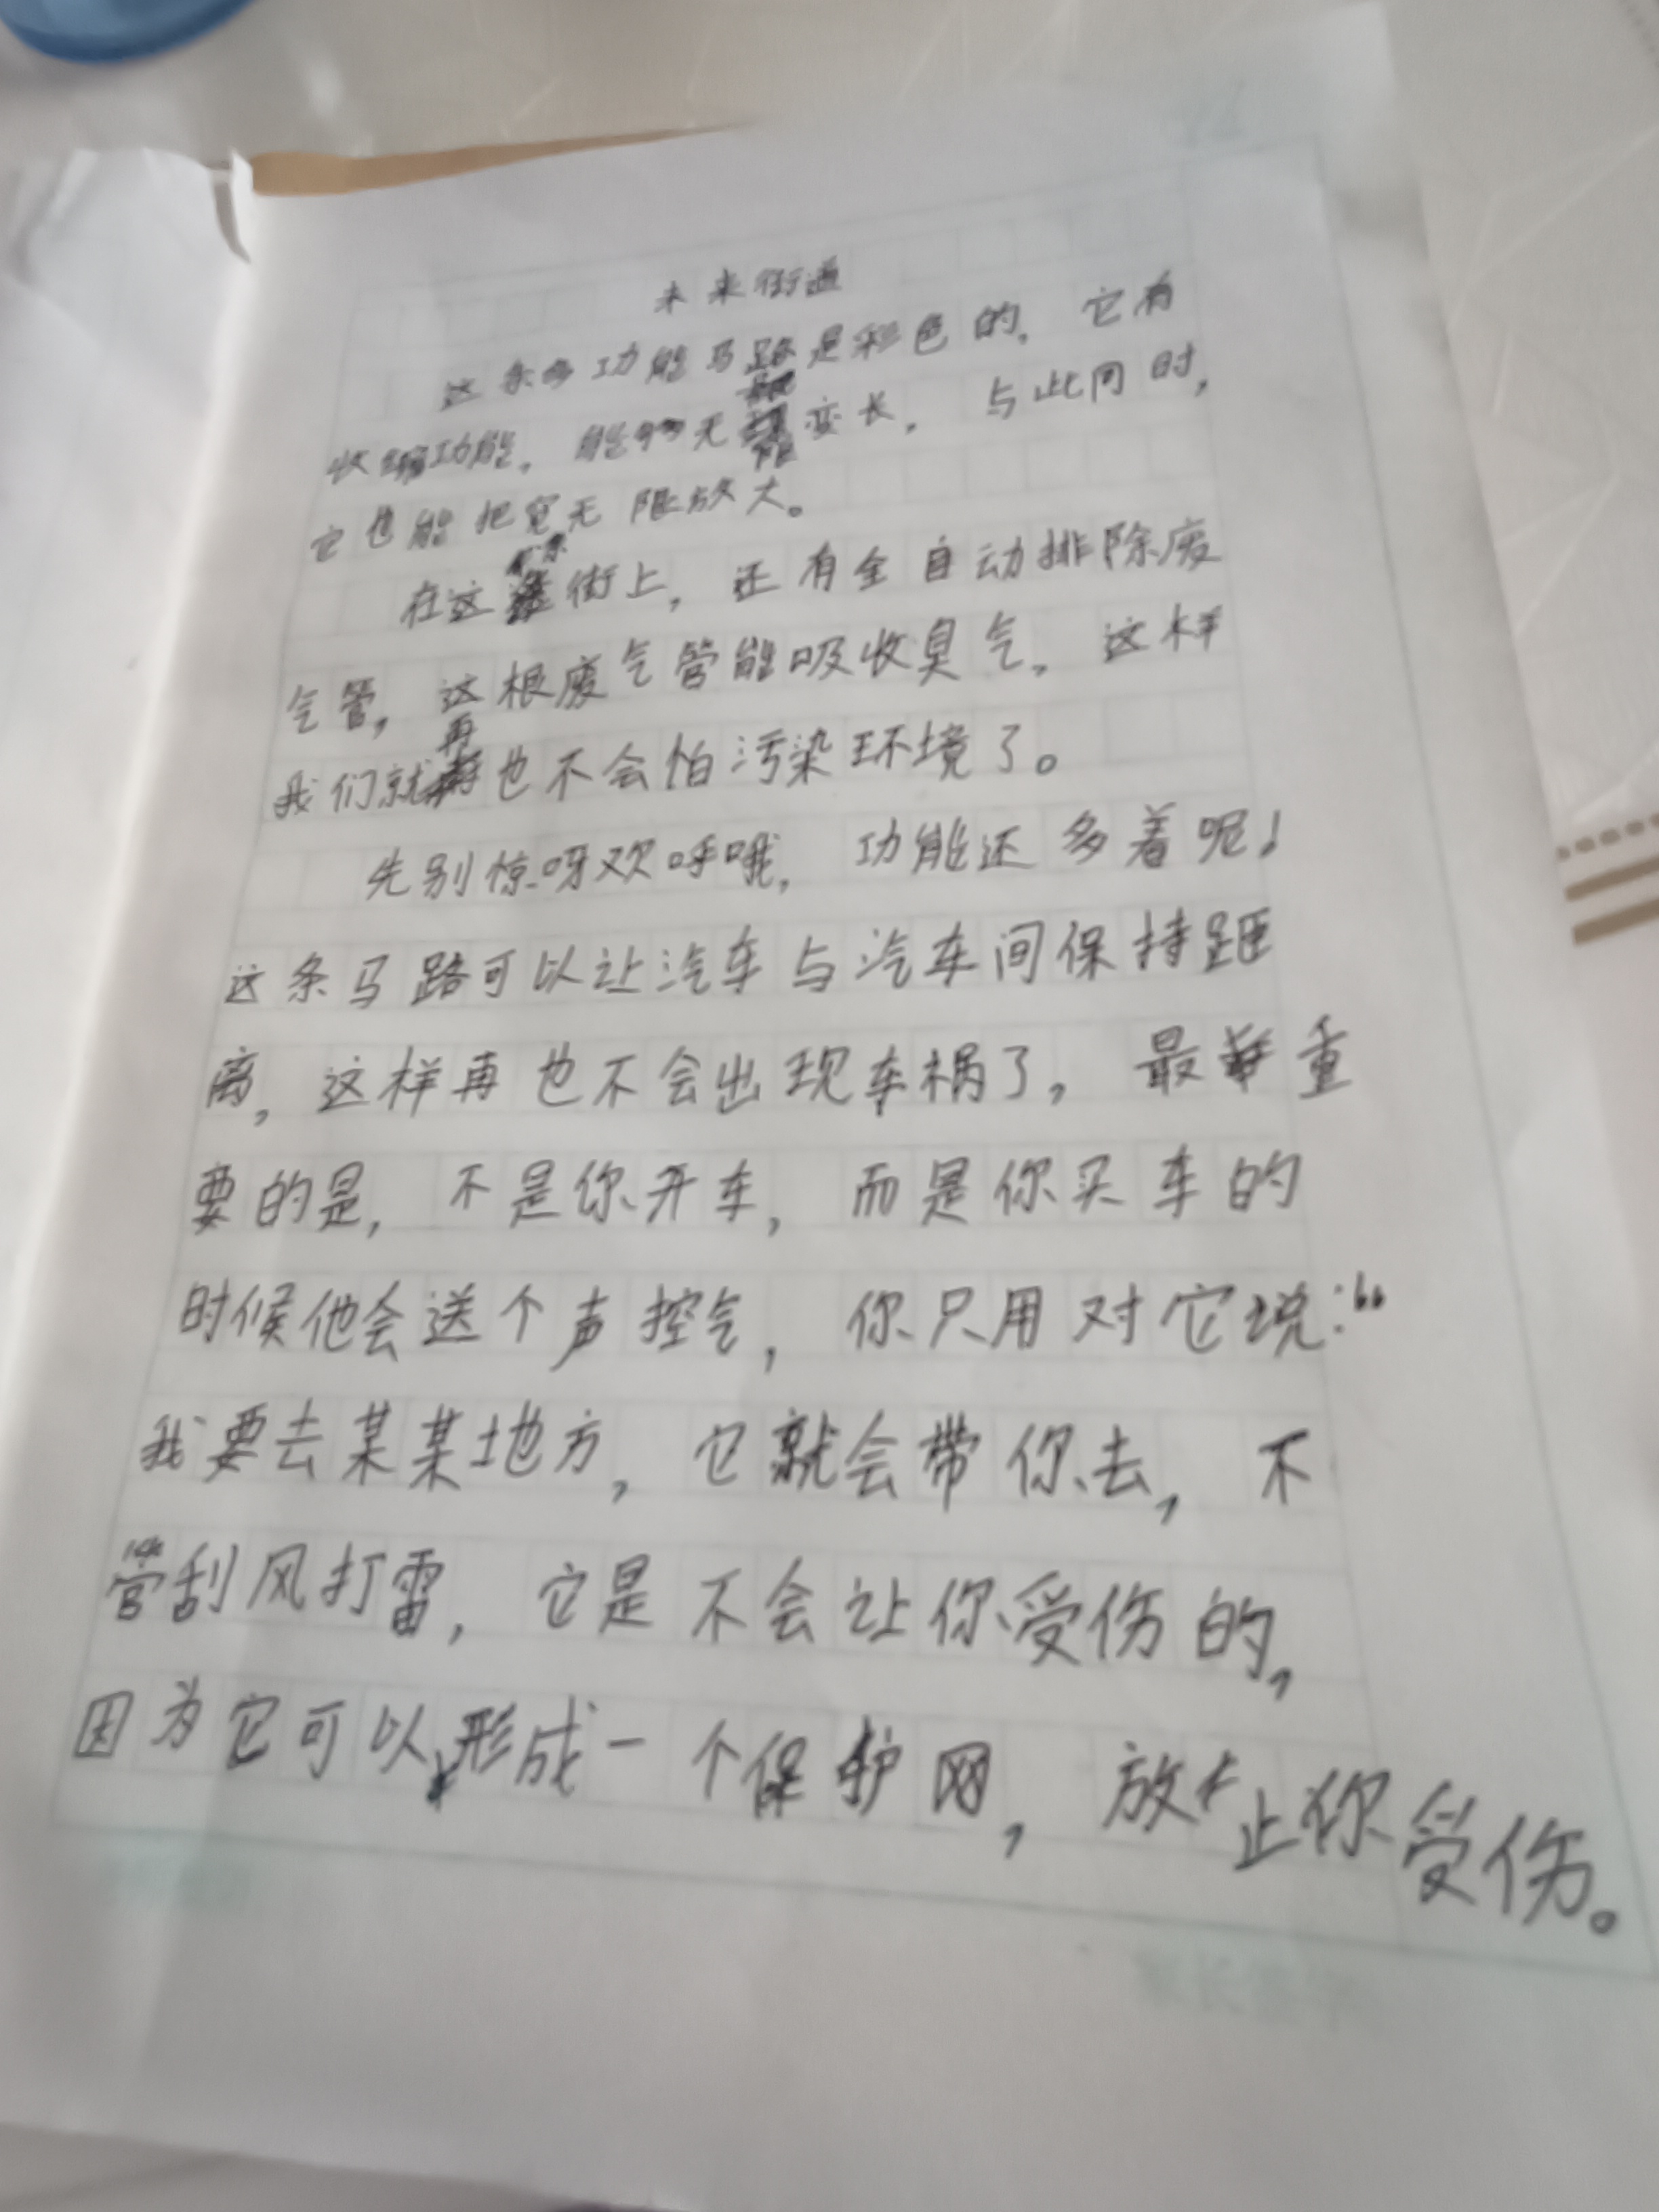 未来街道
这条多功能马路是彩色的，它有
收缩功能，能够无限变长，与此同时，
它也能把宽无限放大。
在这条街上，还有全自动排除废
气管，这根废气管能吸收臭气，这样
我们就再也不会怕污染环境了。
先别惊呀欢呼哦，功能还多着呢！
这条马路可以让汽车与汽车间保持距
离，这样再也不会出现车祸了，最重
要的是，不是你开车，而是你买车的
时候他会送个声控气，你只用对它说：“
我要去某某地方，它就会带你去，不
管刮风打雷，它是不会让你受伤的，
因为它可以形成一个保护网，放止你受伤。